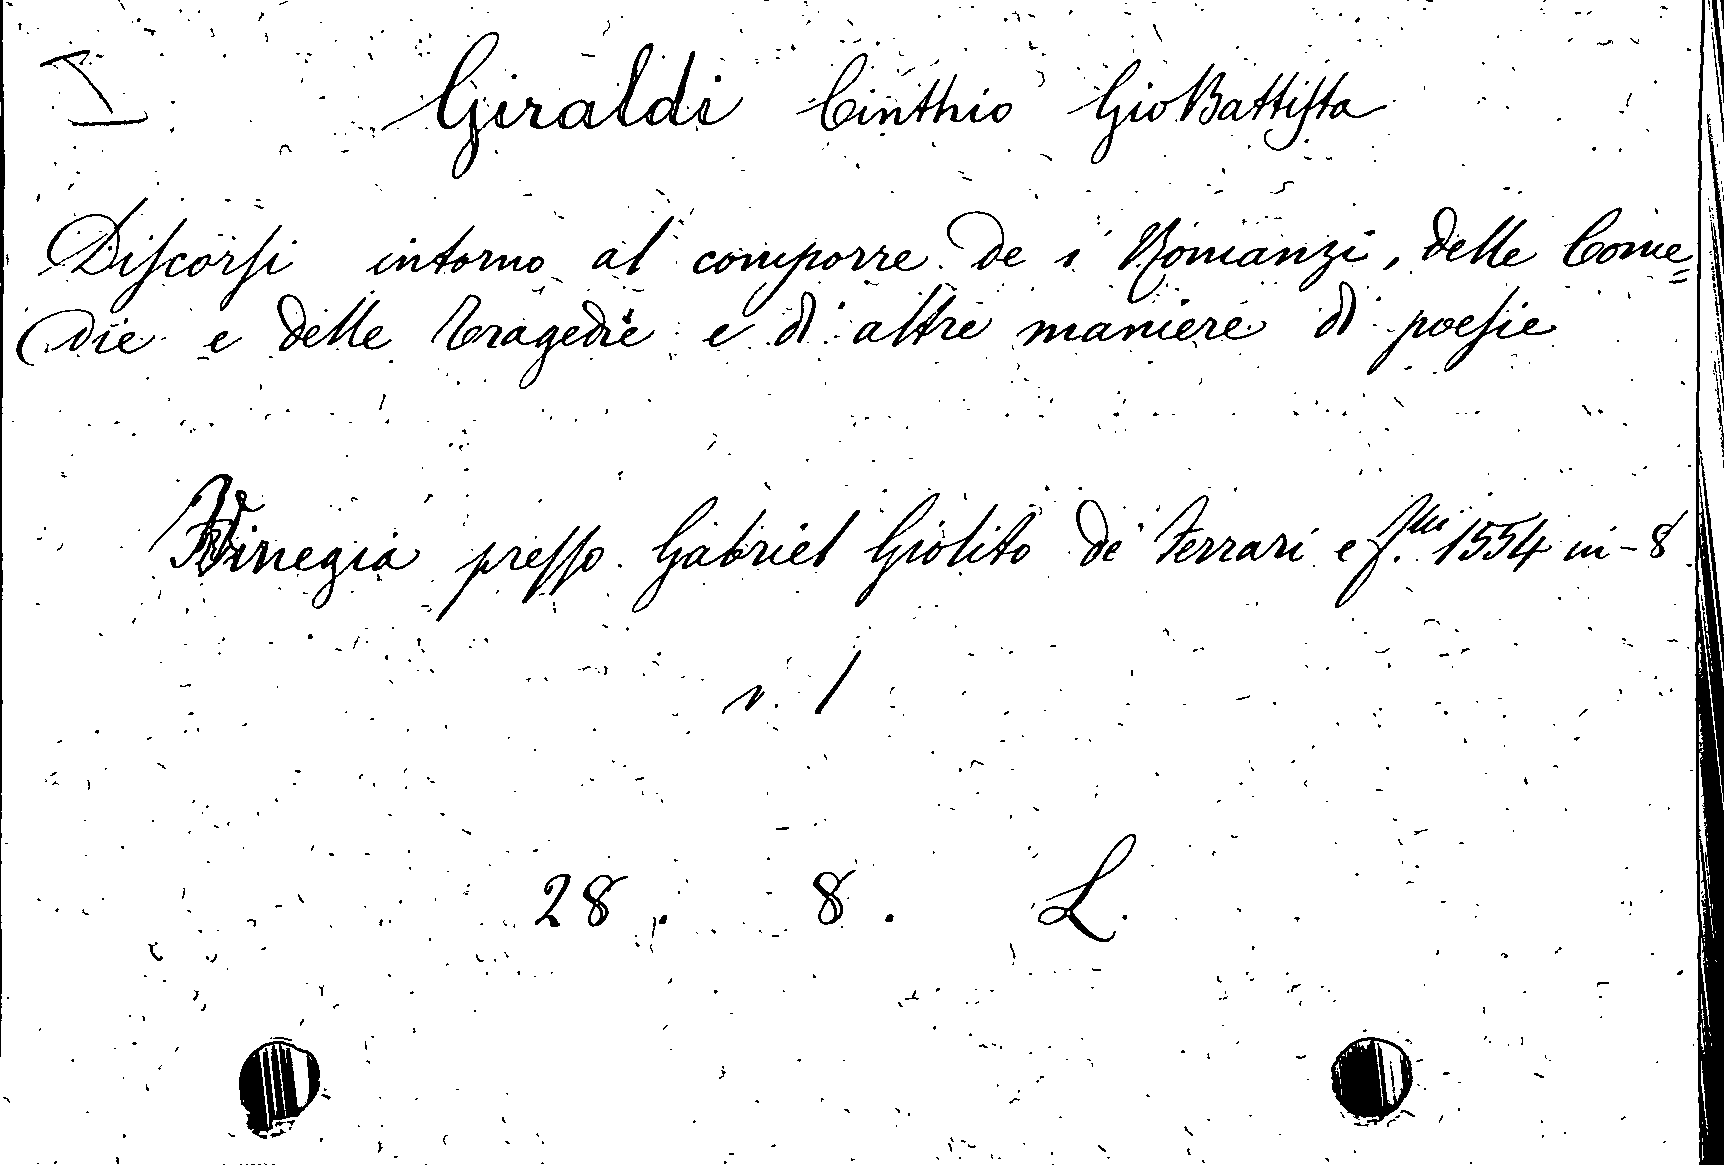 I
Giraldi Cinthio Gio Battista
Discorsi intorno al comporre de i Romanzi, delle Come=
die e delle Tragedie e di altre maniere di poesie
Vinegia presso Gabriel Giolito de' Ferrari e f.lli 1554 in-8
v. 1
28. 8. L.